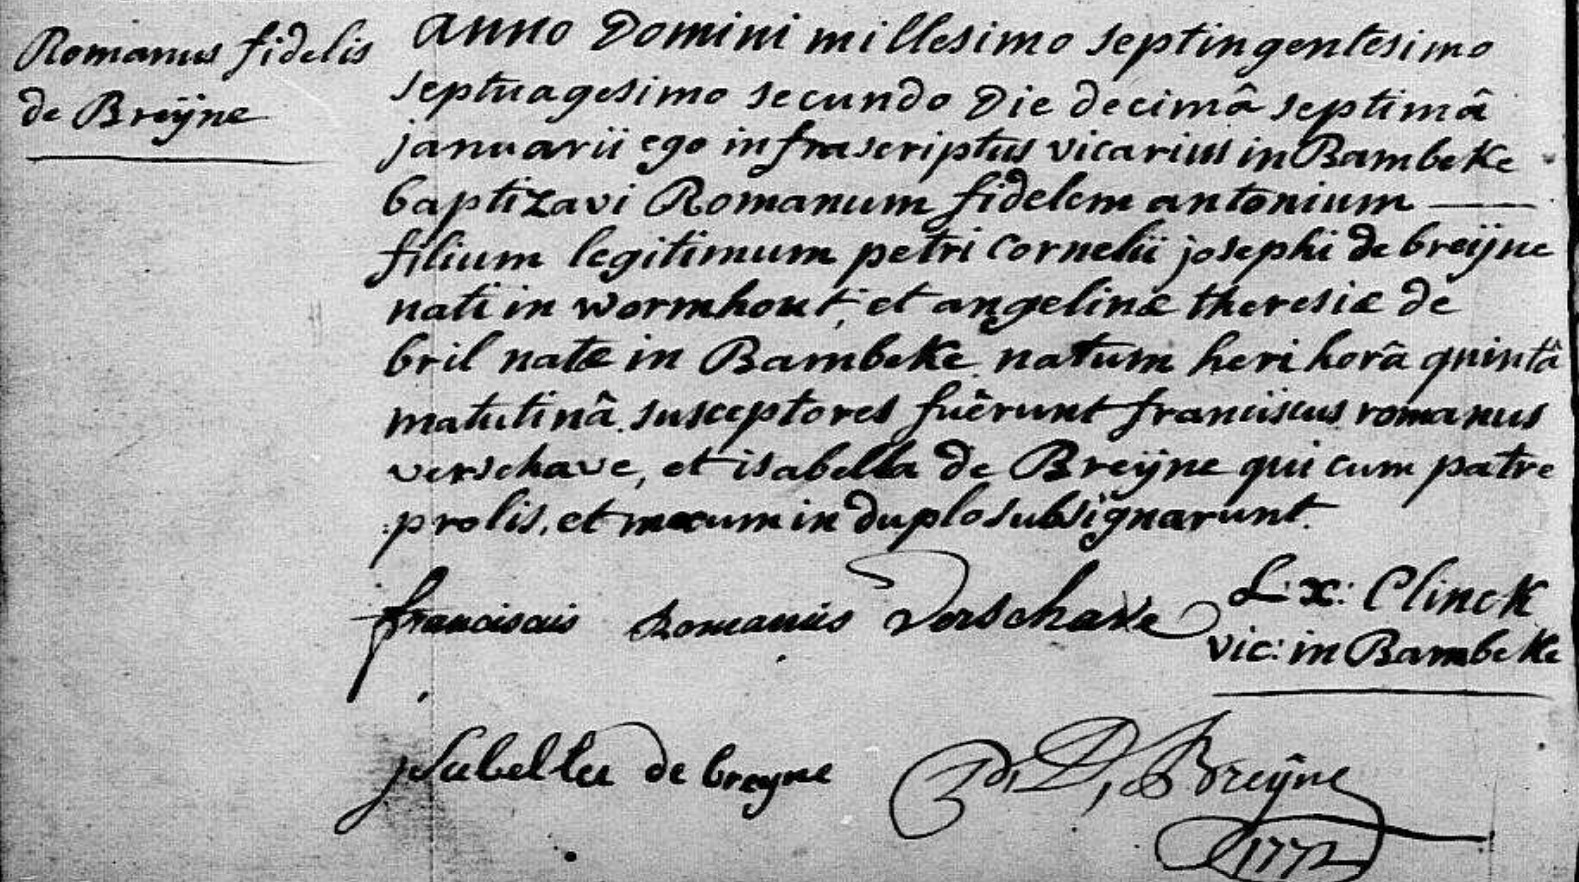 Romanus fidelis
de Breÿne
anno Domini millesimo septingentesimo
septuagesimo secundo Die decimâ septimâ
januarii ego infrascriptus vicarius in Bambeke
baptizavi Romanum fidelem antonium
filium legitimum petri Cornelii josephi de breÿne
nati in wormhout, et angelinæ theresiæ de
bril natæ in Bambeke natum heri horâ quintâ
matutinâ susceptores fuêrunt franciscus romanus
verschave, et isabella de Breÿne qui cum patre
prolis, et mecum in duplo subsignarunt.
franciscus Romanus Verschave
L: x: Clinck
vic: in Bambeke
jsabella de breyne
Breÿne
1772